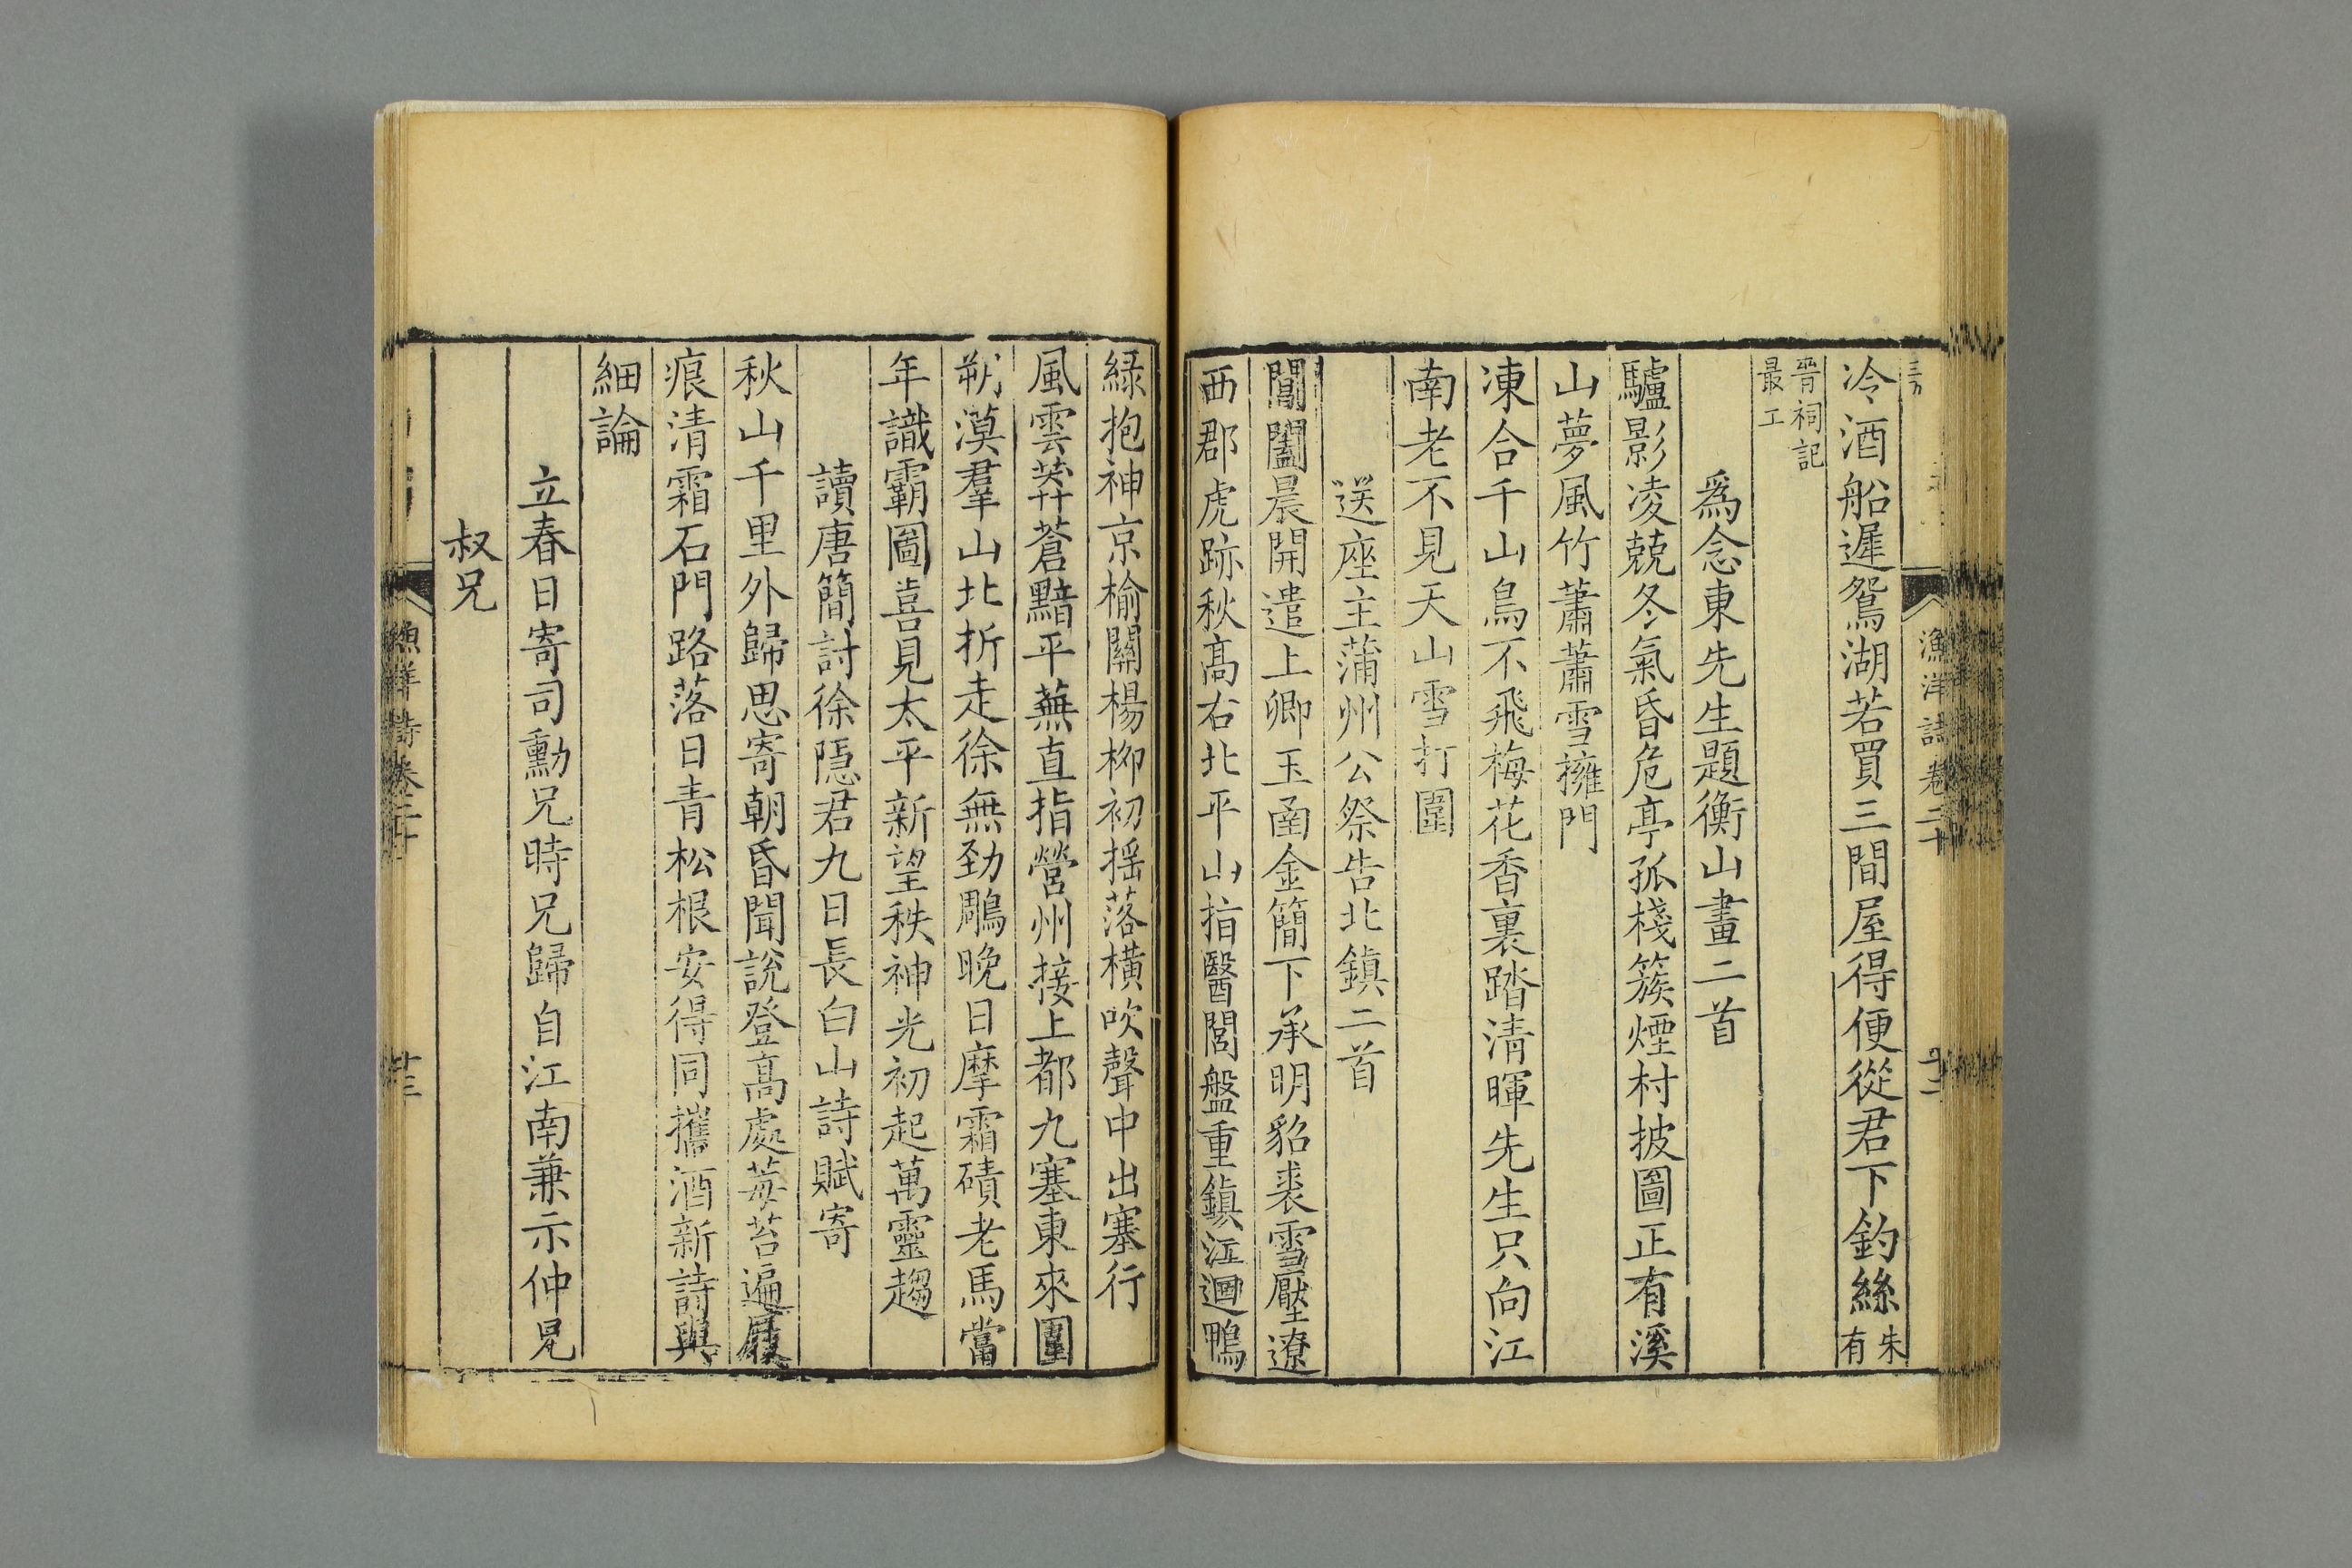 冷酒船遲鴛湖若買三間屋得便從君下釣絲朱有
晉祠記
最工
爲念東先生題衡山畫二首
驢影凌兢冬氣昏危亭孤棧簇煙村披圖正有溪
山夢風竹蕭蕭雪擁門
凍合千山鳥不飛梅花香裏踏清暉先生只向江
南老不見天山雪打圍
送座主蒲州公祭告北鎮二首
閶闔晨開遣上卿玉函金簡下承明貂裘雪壓遼
西郡虎跡秋高右北平山指醫閭盤重鎮江迴鴨
綠抱神京榆關楊柳初摇落橫吹聲中出塞行
風雲莽蒼黯平蕪直指營州接上都九塞東來圍
朔漠羣山北折走徐無勁鵰晚日摩霜磧老馬當
年識霸圖喜見太平新望秩神光初起萬靈趨
讀唐簡討徐隱君九日長白山詩賦寄
秋山千里外歸思寄朝昏聞說登高處莓苔遍屐
痕清霜石門路落日青松根安得同攜酒新詩與
細論
立春日寄司勳兄時兄歸自江南兼示仲兄
叔兄
漁洋詩卷二十
十二
漁洋詩卷二十
十三